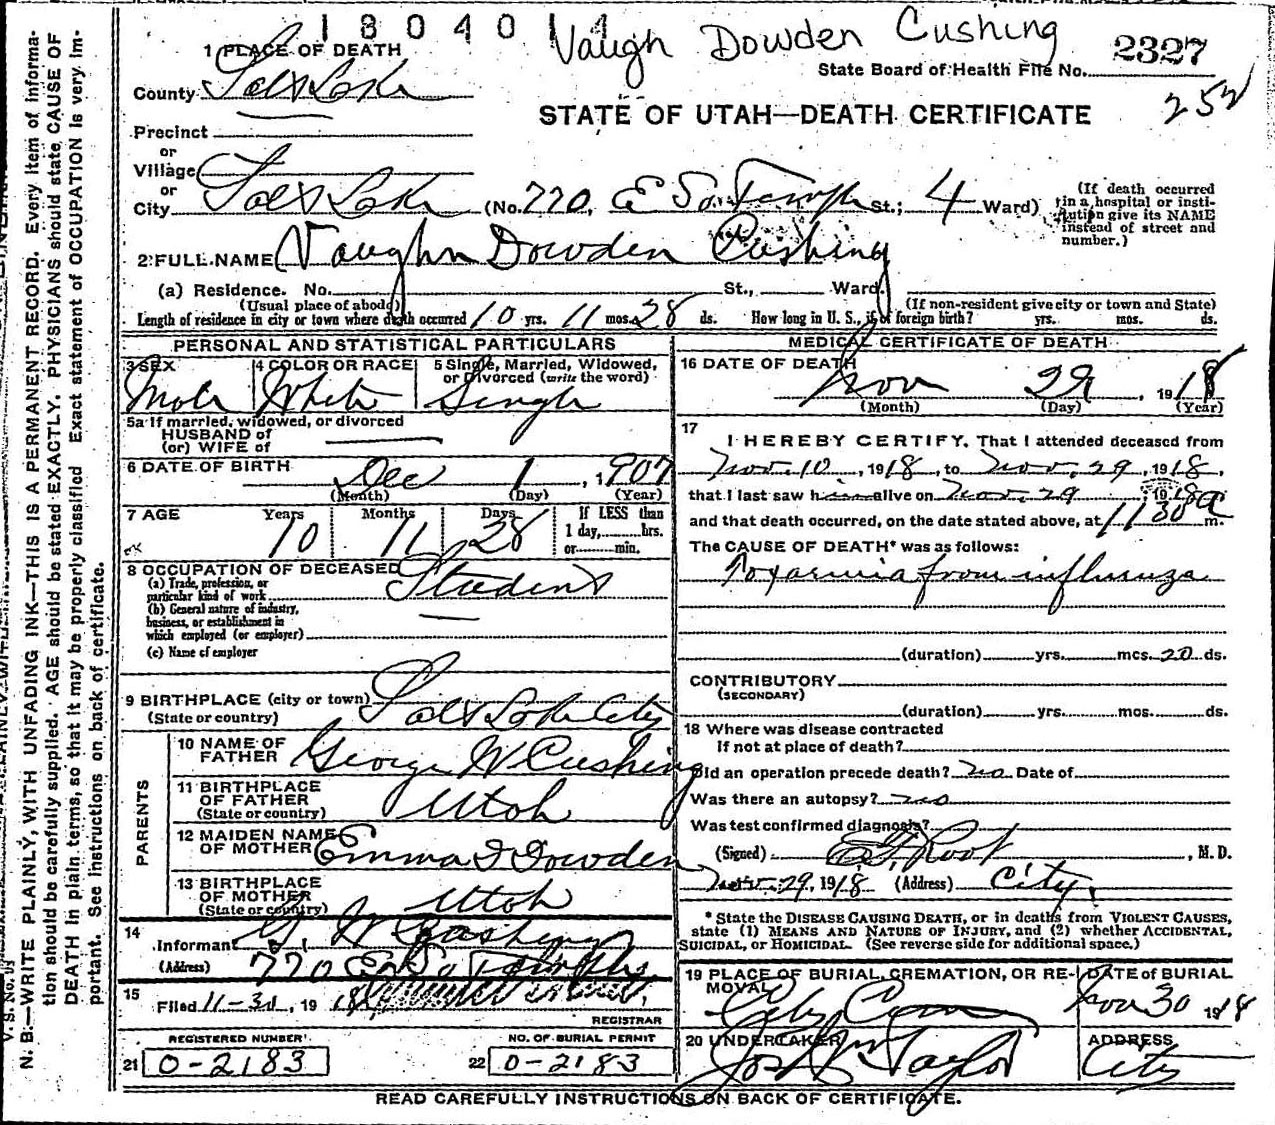 1804014
Vaugh Dowden Cushing
2327
State Board of Health File No.
252
1 PLACE OF DEATH
County Salt Lake
STATE OF UTAH—DEATH CERTIFICATE
Precinct
or
Village
or
City Salt Lake (No. 770, E So. Temple St.; 4 Ward)
(If death occurred in a hospital or institution give its NAME instead of street and number.)
2 FULL NAME Vaughn Dowden Cushing
(a) Residence. No. St., Ward.
(Usual place of abode) (If non-resident give city or town and State)
Length of residence in city or town where death occurred 10 yrs. 11 mos. 28 ds. How long in U. S., if of foreign birth? yrs. mos. ds.
PERSONAL AND STATISTICAL PARTICULARS
3 SEX Male
4 COLOR OR RACE White
5 Single, Married, Widowed, or Divorced (write the word) Single
5a If married, widowed, or divorced
HUSBAND of
(or) WIFE of
6 DATE OF BIRTH Dec 1, 1907
(Month) (Day) (Year)
7 AGE Years 10 Months 11 Days 28 If LESS than 1 day, hrs. or min.
8 OCCUPATION OF DECEASED Student
(a) Trade, profession, or particular kind of work
(b) General nature of industry, business, or establishment in which employed (or employer)
(c) Name of employer
9 BIRTHPLACE (city or town) Salt Lake City
(State or country)
PARENTS
10 NAME OF FATHER George W Cushing
11 BIRTHPLACE OF FATHER Utah
(State or country)
12 MAIDEN NAME OF MOTHER Emma I Dowden
13 BIRTHPLACE OF MOTHER Utah
(State or country)
14
Informant G W Cushing
(Address) 770 E So Temple
15
Filed 11-30, 1918
REGISTRAR
REGISTERED NUMBER
21 0-2183
NO. OF BURIAL PERMIT
22 0-2183
MEDICAL CERTIFICATE OF DEATH
16 DATE OF DEATH Nov 29, 1918
(Month) (Day) (Year)
17
I HEREBY CERTIFY, That I attended deceased from
Nov. 10, 1918, to Nov. 29, 1918,
that I last saw him alive on Nov. 29, 1918
and that death occurred, on the date stated above, at 11 30 a m.
The CAUSE OF DEATH* was as follows:
Toxaemia from influenza
(duration) yrs. mos. 20 ds.
CONTRIBUTORY
(SECONDARY)
(duration) yrs. mos. ds.
18 Where was disease contracted
If not at place of death?
Did an operation precede death? no Date of
Was there an autopsy? no
Was test confirmed diagnosis?
(Signed) Root, M. D.
Nov. 29, 1918 (Address) City.
* State the DISEASE CAUSING DEATH, or in deaths from VIOLENT CAUSES,
state (1) MEANS AND NATURE OF INJURY, and (2) whether ACCIDENTAL,
SUICIDAL, or HOMICIDAL. (See reverse side for additional space.)
19 PLACE OF BURIAL, CREMATION, OR REMOVAL City Cem
DATE of BURIAL Nov 30 1918
20 UNDERTAKER Jos Wm Taylor
ADDRESS City
READ CAREFULLY INSTRUCTIONS ON BACK OF CERTIFICATE.
N. B.—WRITE PLAINLY, WITH UNFADING INK—THIS IS A PERMANENT RECORD. Every item of information should be carefully supplied. AGE should be stated EXACTLY. PHYSICIANS should state CAUSE OF DEATH in plain terms, so that it may be properly classified. Exact statement of OCCUPATION is very important. See instructions on back of certificate.